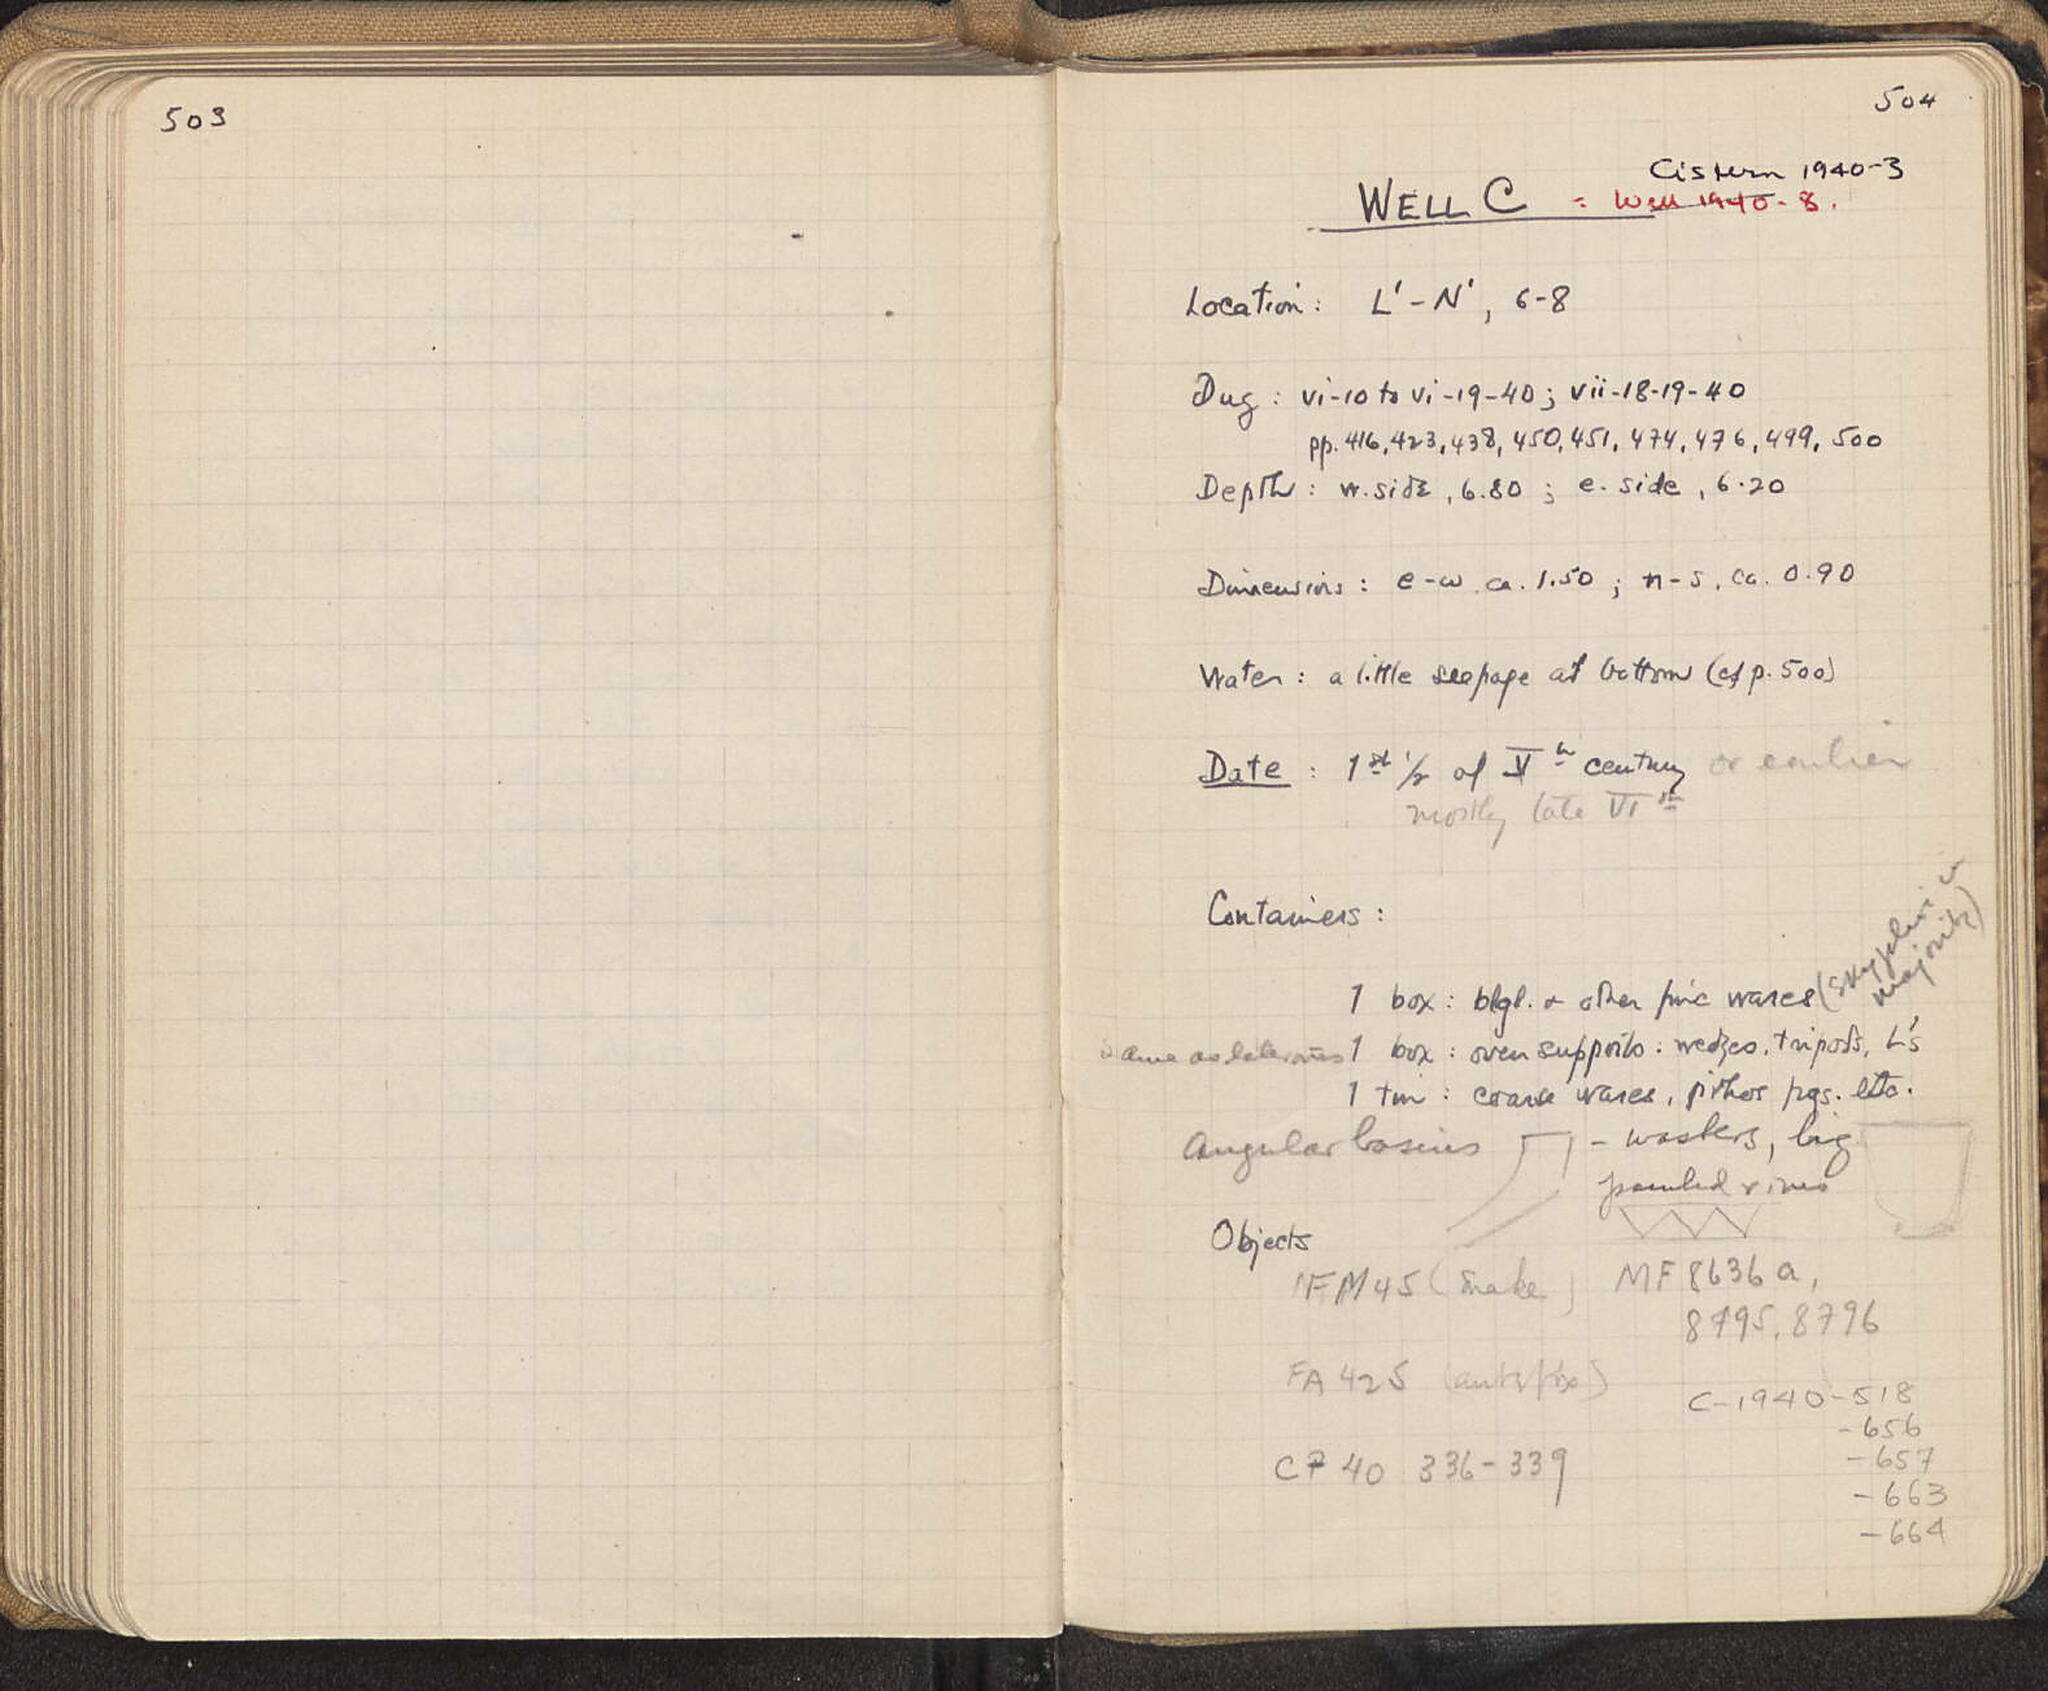 503
504
Cistern 1940-3
WELL C = Well 1940-8.
Location : L' - N' , 6-8
Dug : vi-10 to vi-19-40 ; vii-18-19-40
pp. 416, 423, 438, 450, 451, 474, 476, 499, 500
Depth : w. side , 6.80 ; e. side , 6.20
Dimensions : e-w. ca. 1.50 ; n-s. ca. 0.90
Water : a little seepage at bottom (cf p. 500)
Date : 1st 1/2 of Vth century or earlier
mostly late VIth
Containers :
1 box : blgl. & other fine wares (skyphoi in majority)
same as later ones 1 box : oven supports : wedges, tripods, L's
1 tin : coarse wares, pithos pgs. etc.
Angular basins - wasters, big
painted rims
Objects
MF 8636 a,
(snake)
8795, 8796
FA 425 (antefix)
C-1940-518
-656
CP 40 336-339
-657
-663
-664